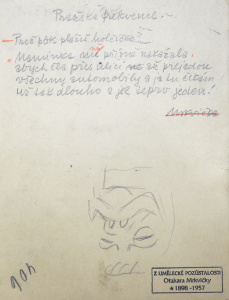 Pražská frekvence.
– Proč pak pláčeš holčičko?
– Maminka mě přísně nakázala,
abych šla přes ulici až přejedou
všechny automobily a já tu čekám
už tak dlouho a jel teprv jeden!
406
Z UMĚLECKÉ POZŮSTALOSTI
Otakara Mrkvičky
* 1898 - 1957